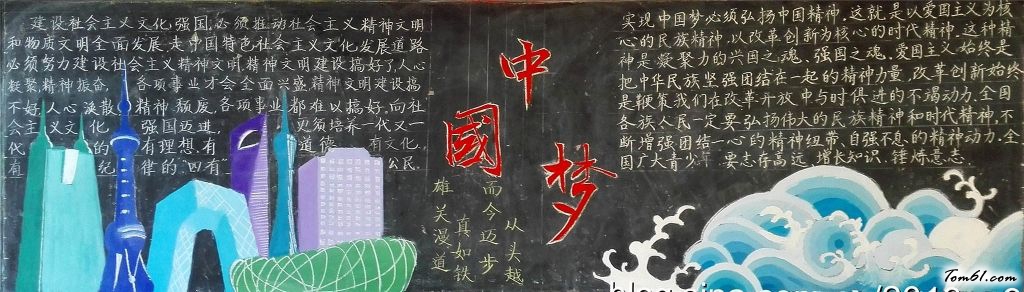 建设社会主义文化强国,必须推动社会主义精神文明
和物质文明全面发展,走中国特色社会主义文化发展道路
必须努力建设社会主义精神文明,精神文明建设搞好了,人心
凝聚,精神振奋,各项事业才会全面兴盛,精神文明建设搞
不好,人心涣散,精神颓废,各项事业都难以搞好,向社
会主义文化 强国迈进, 必须培养一代又一
代 的 有理想,有 道德 有文化,
有 纪 律的"四有" 公民
中
國
梦
雄关漫道
真如铁
而今迈步
从头越
实现中国梦必须弘扬中国精神,这就是以爱国主义为核
心的民族精神,以改革创新为核心的时代精神,这种精
神是凝聚力的兴国之魂、强国之魂,爱国主义始终是
把中华民族坚强团结在一起的精神力量,改革创新始终
是鞭策我们在改革开放中与时俱进的不竭动力,全国
各族人民一定要弘扬伟大的民族精神和时代精神,不
断增强团结一心的精神纽带、自强不息的精神动力,全
国广大青少年 要志存高远,增长知识,锤炼意志
Tom61.com